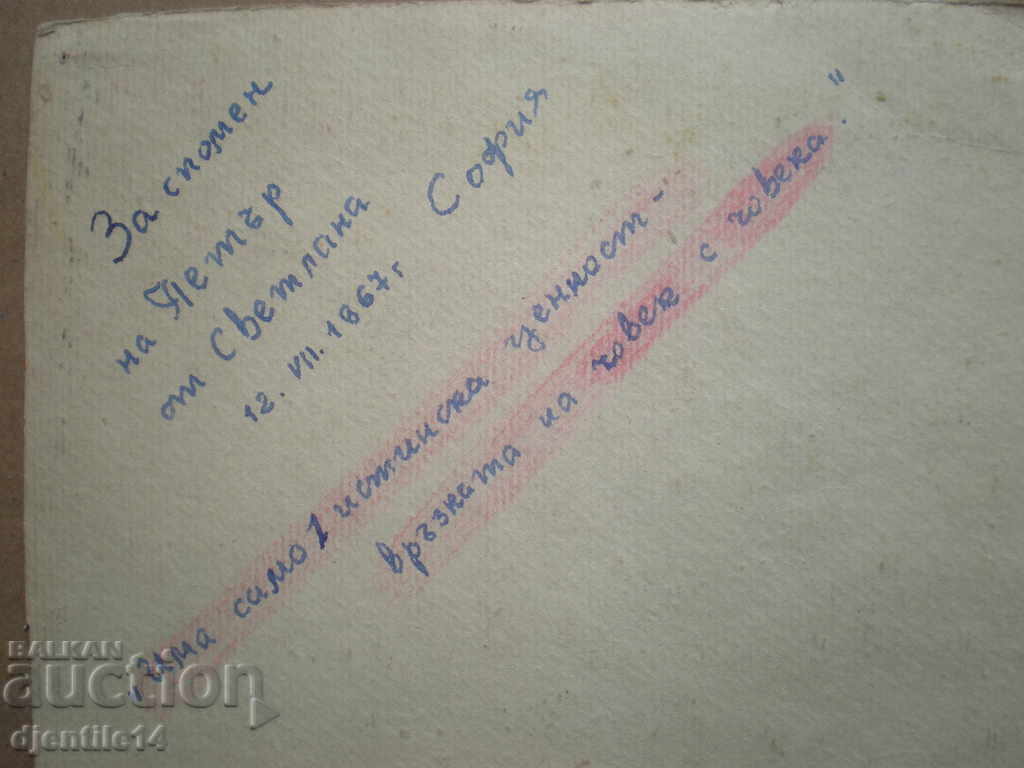 За спомен
на Петър
от Светлана
12. VII. 1967 г. София
„Има само 1 истинска ценност -
връзката на човек с човека."
BALKAN
auction
djentile14